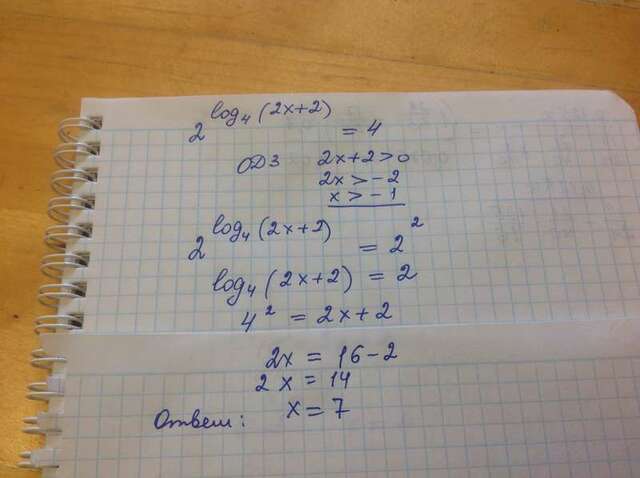 2^log₄(2x+2) = 4
ОДЗ 2x+2>0
2x>-2
x>-1
2^log₄(2x+2) = 2²
log₄(2x+2) = 2
4² = 2x+2
2x = 16-2
2x = 14
Ответ: x = 7